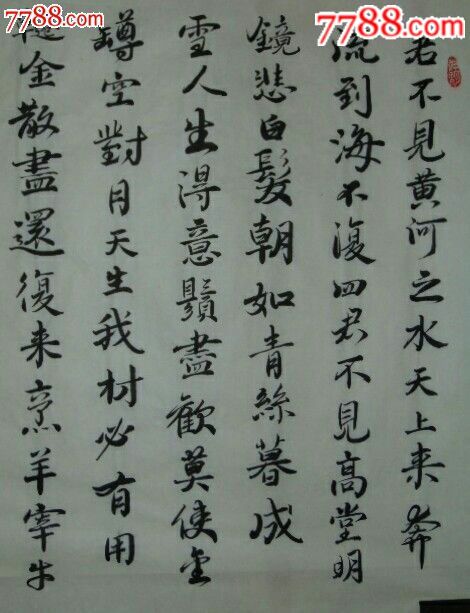 7788.com
7788.com
君不見黄河之水天上来奔
流到海不復回君不見高堂明
鏡悲白髮朝如青絲暮成
雪人生得意須盡歡莫使金
罇空對月天生我材必有用
金散盡還復来烹羊宰牛
7788.com